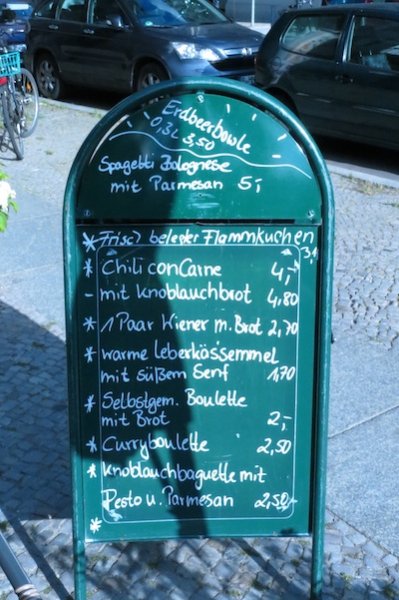 Erdbeerbowle
0,3L 3,50
Spagetti Bolognese
mit Parmesan 5,-
* Frisch belegter Flammkuchen
* Chili con Carne 4,-
- mit Knoblauchbrot 4,80
* 1 Paar Wiener m. Brot 2,70
* warme Leberkässemmel
mit süßem Senf 1,70
* Selbstgem. Boulette
mit Brot 2,-
* Curryboulette 2,50
* Knoblauchbaguette mit
Pesto u. Parmesan 2,50
*